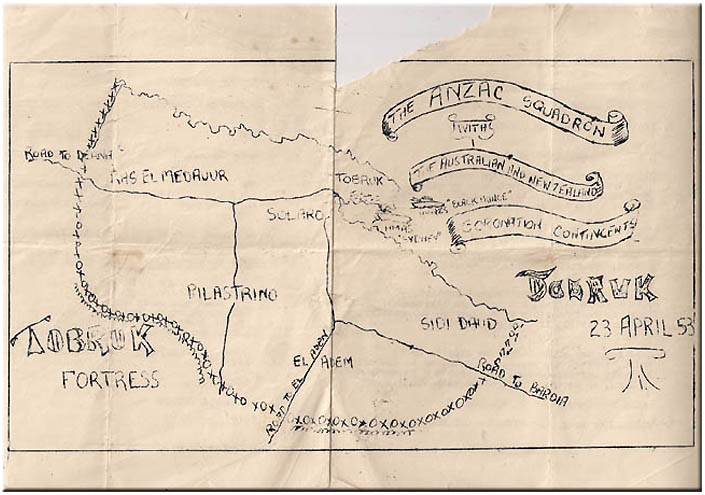 THE ANZAC SQUADRON
WITH
THE AUSTRALIAN AND NEW ZEALAND
CORONATION CONTINGENTS
ROAD TO DERNA
RAS EL MEDAUUR
TOBRUK
SOLARO
HMNZS "BLACK PRINCE"
HMAS "SYDNEY"
PILASTRINO
TOBRUK
23 APRIL 53
SIDI DAUD
TOBRUK
FORTRESS
EL ADEM
ROAD TO EL ADEM
ROAD TO BARDIA